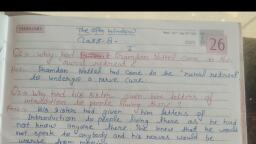 The open window
Class - 8
26
Q1 = Why had Framdon Nuttel came to the rural retreat?
Ans. Framdon Nuttel had come to the rural retreat
to undergo a nerve cure.
Q2 = Why had his sister given him letters of
introduction to people living there?
Ans = His sister had given him letters of
introduction to people living there as he had
not know anyone there. She knew that he would
not speak to anybody and his nerves would be
worse from